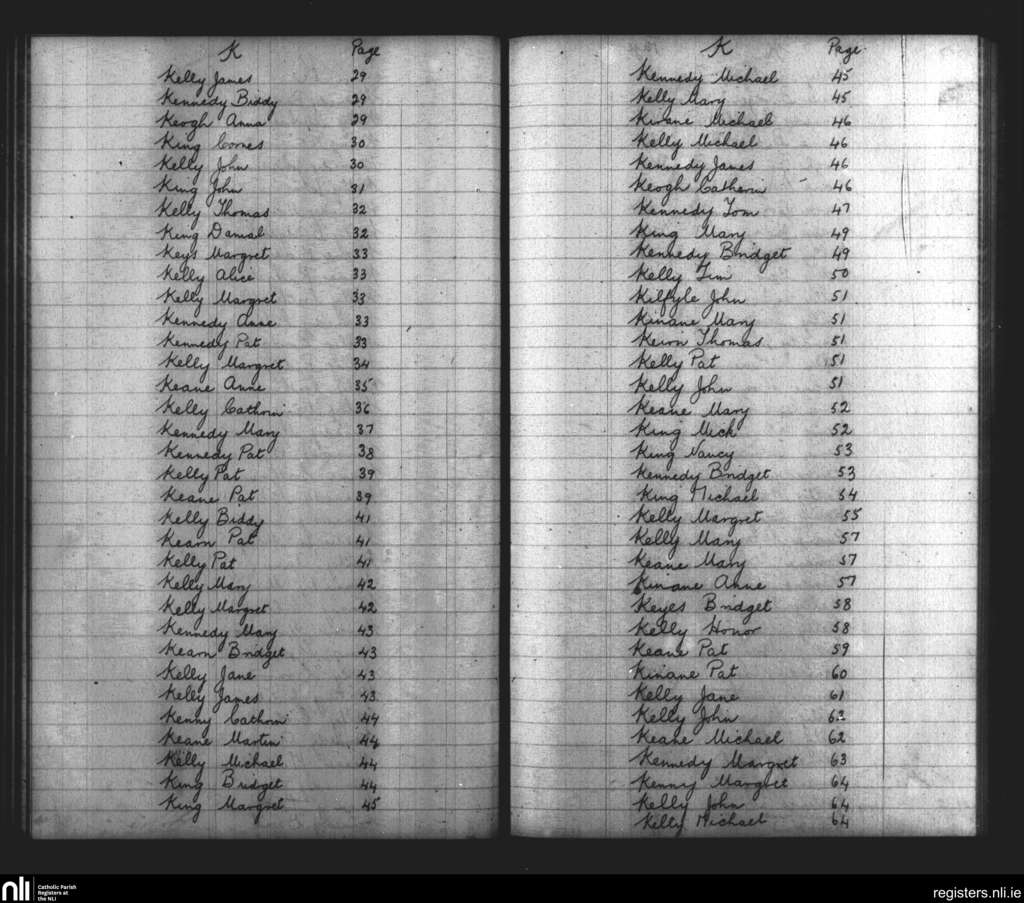 K Page
Kelly James 29
Kennedy Biddy 29
Keogh Anna 29
King 30
Kelly John 30
King John 31
Kelly Thomas 32
King Danial 32
Keys Margret 33
Kelly Alice 33
Kelly Margret 33
Kennedy Anne 33
Kennedy Pat 33
Kelly Margret 34
Keane Anne 35
Kelly Cathrin 36
Kennedy Mary 37
Kennedy Pat 38
Kelly Pat 39
Keane Pat 39
Kelly Biddy 41
Kearn Pat 41
Kelly Pat 41
Kelly Mary 42
Kelly Margret 42
Kennedy Mary 43
Kearn Bridget 43
Kelly Jane 43
Kelly James 43
Kenny Cathrin 44
Keane Martin 44
Kelly Michael 44
King Bridget 44
King Margret 45
K Page
Kennedy Michael 45
Kelly Mary 45
Kinane Michael 46
Kelly Michael 46
Kennedy James 46
Keogh Catherin 46
Kennedy Tom 47
King Mary 49
Kennedy Bridget 49
Kelly Tim 50
Kilfyle John 51
Kinane Mary 51
Thomas 51
Kelly Pat 51
Kelly John 51
Keane Mary 52
King Mick 52
King Nancy 53
Kennedy Bridget 53
King Michael 54
Kelly Margret 55
Kelly Mary 57
Keane Mary 57
Kinane Anne 57
Keyes Bridget 58
Kelly Honor 58
Keane Pat 59
Kinane Pat 60
Kelly Jane 61
Kelly John 62
Keane Michael 62
Kennedy Margret 63
Kenny Margret 64
Kelly John 64
Kelly Michael 64
nli Catholic Parish
Registers at
the NLI
registers.nli.ie